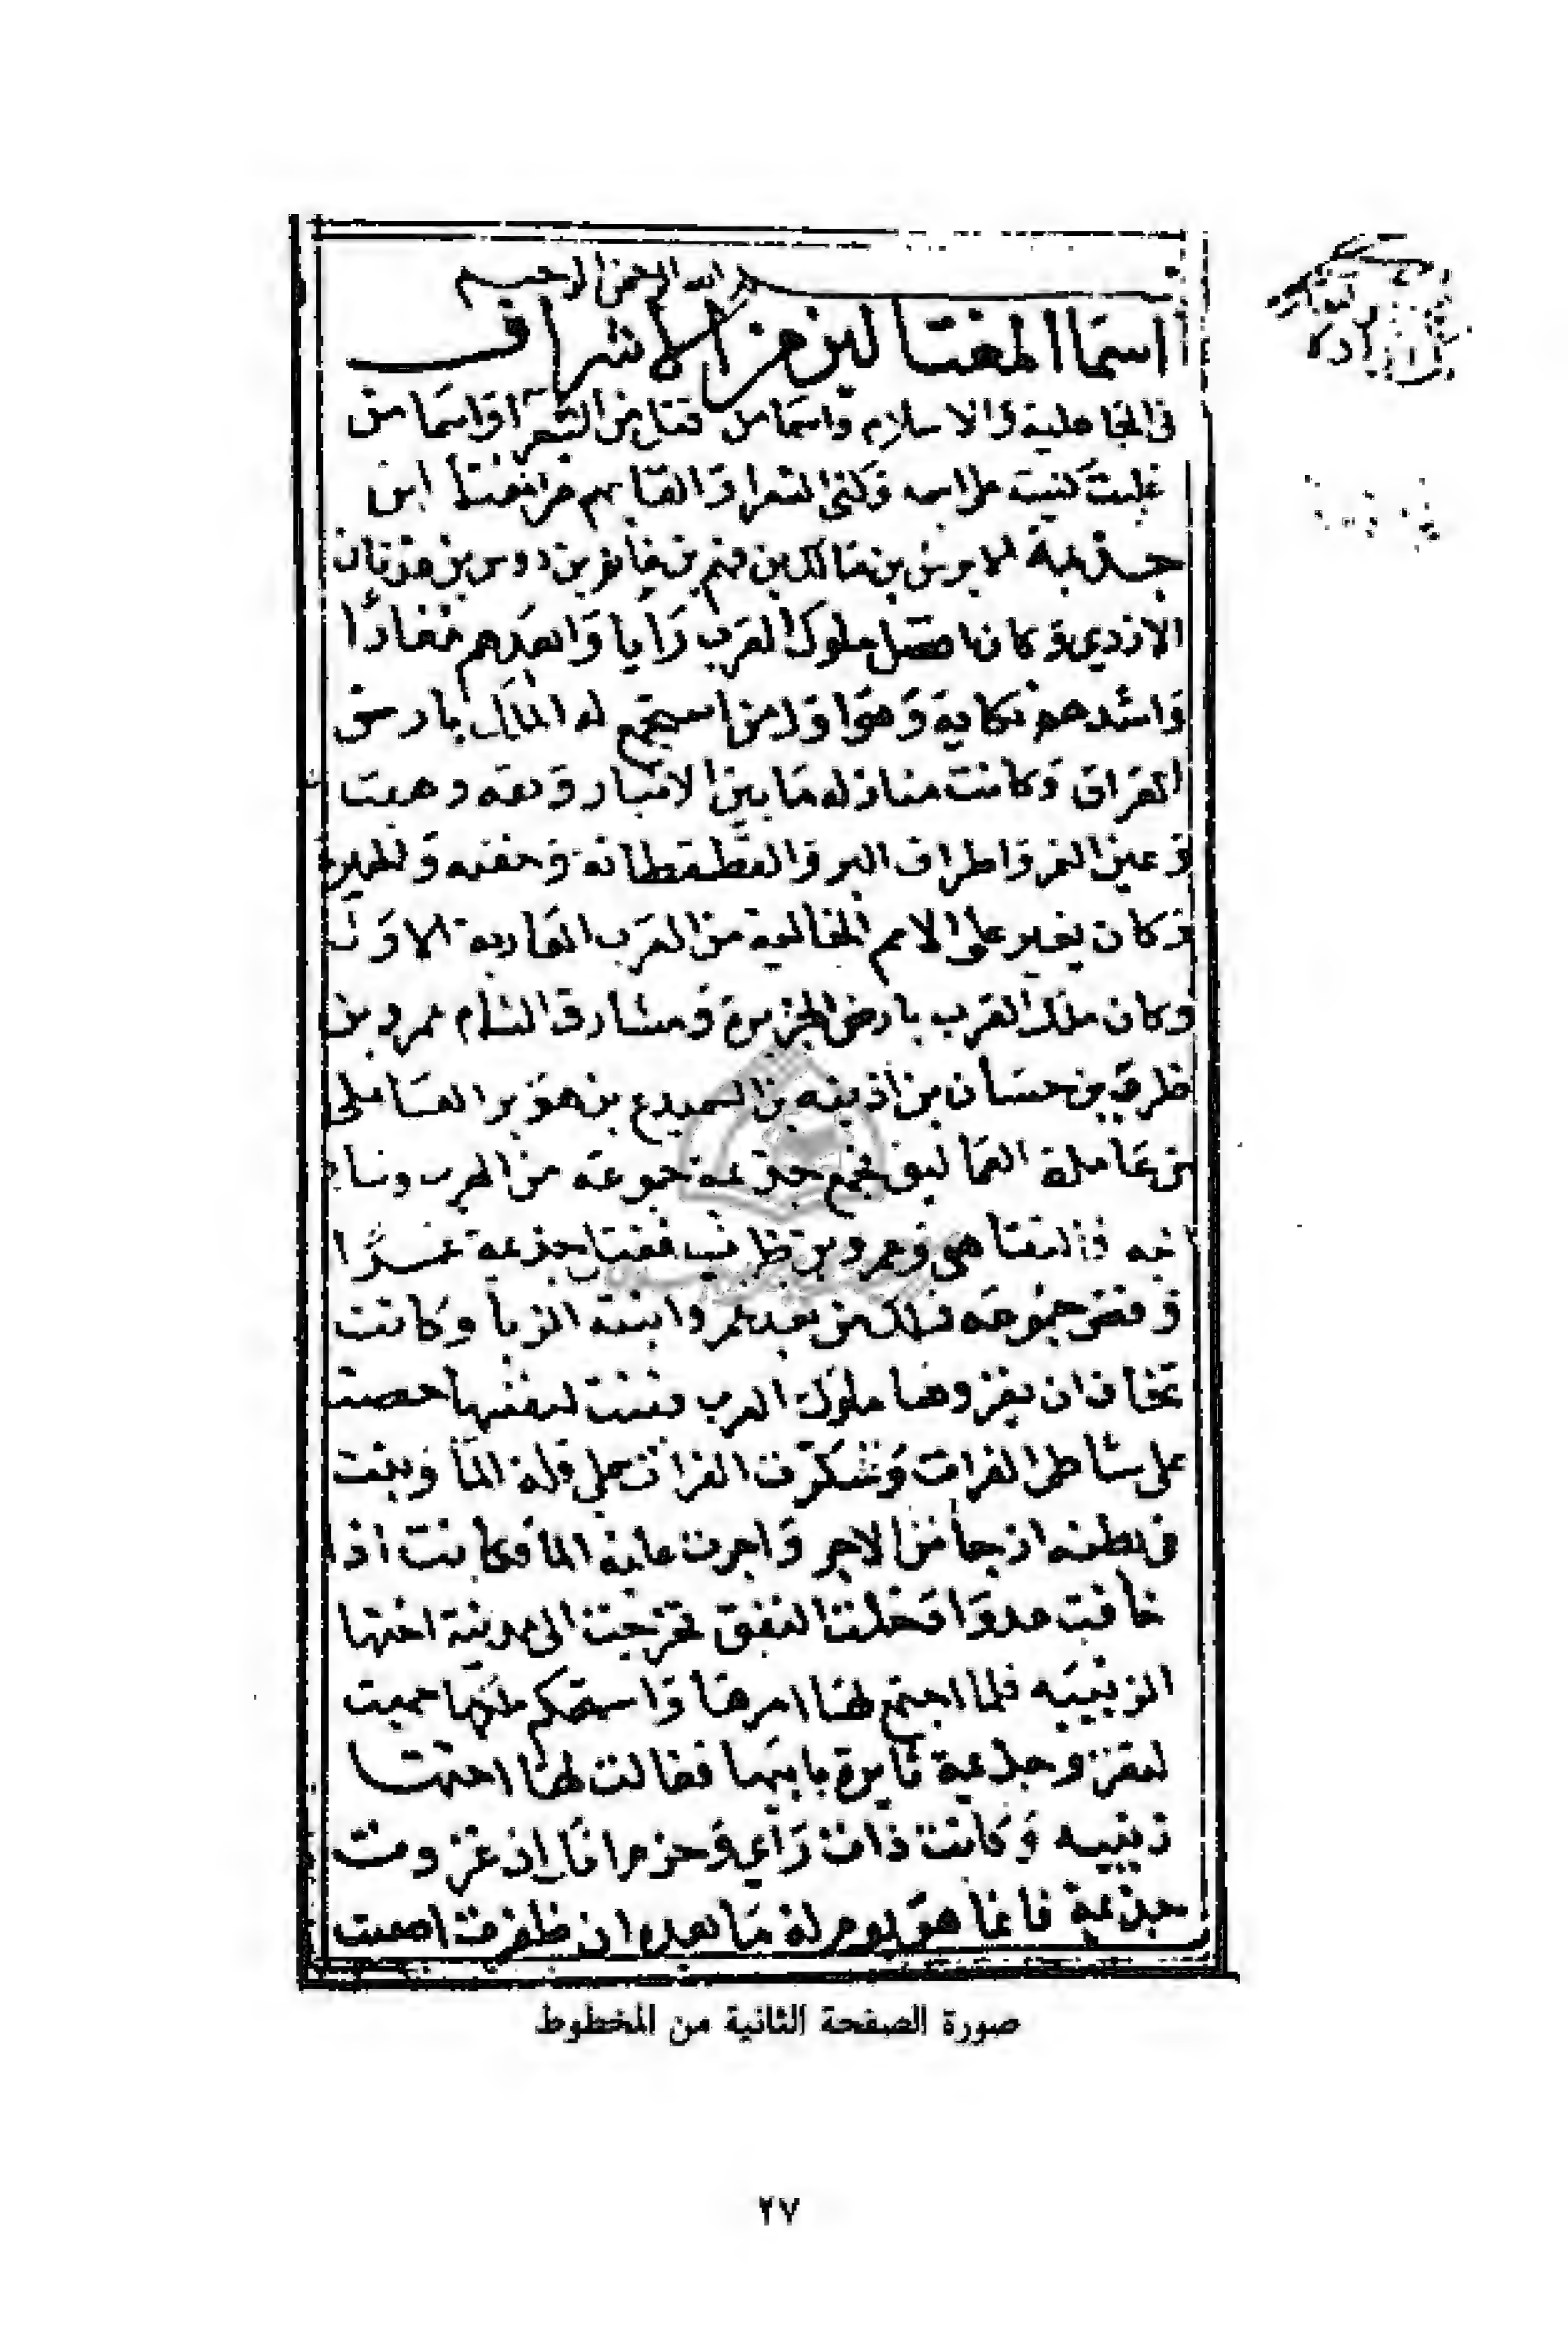 بسم الله الرحمن الرحيم
اسما المغتالين من الاشراف
في الجاهلية والاسلام واسما من قتل من الشعرا واسما من
غلبت كنيته على اسمه وكنى الشعرا والقابهم
جذيمة الابرش بن مالك بن فهم بن غانم بن دوس بن عدنان
الازدي وكان افضل ملوك العرب رايا وابعدهم مغارًا
واشدهم نكاية وهو اول من استجمع له الملك بارض
العراق وكانت منازله ما بين الانبار وبقه وهيت
وعين التمر واطراف البر والقطقطانة وخفيه والحيره
وكان يغير على الامم الخالية من العرب العاربة الاول
وكان ملك العرب بارض الجزيرة ومشارق الشام عمرو بن
ظرب بن حسان بن اذينه بن السميدع بن هوبر العاملي
من عاملة العماليق فجمع جذيمة جموعه من العرب وسار
اليه فالتقا هو وعمرو بن ظرب فقتل جذيمة عمرًا
وفض جموعه فملك من بعد عمرو ابنته الزبا وكانت
تخاف ان يغزوها ملوك العرب فبنت لنفسها حصنا
على شاطى الفرات وسكرت الفرات على قلة الما وبنت
في بطنه ازجا من الاجر واجرت عليه الما فكانت اذا
خافت عدوا دخلت النفق فخرجت الى مدينة اختها
الزبيبه فلما اجتمع لها امرها واستحكم ملكها اجمعت
لتغزو جذيمة ثايرة بابيها فقالت لها اختها
زبيبه وكانت ذات راي وحزم انك ان غزوت
جذيمة فانما هو يوم له ما بعده ان ظفرت اصبت
صورة الصفحة الثانية من المخطوط
٢٧